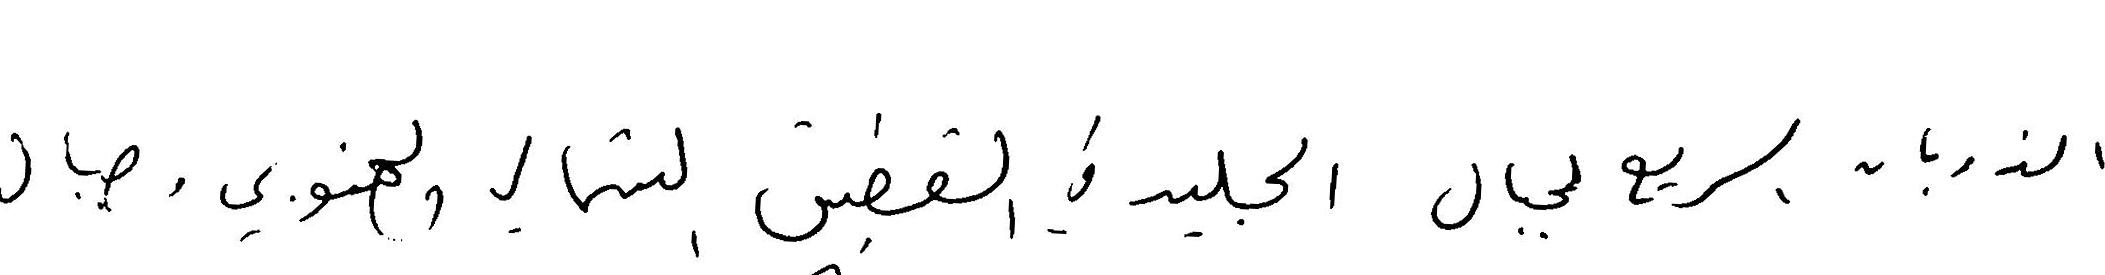 الذوبان السريع لجبال الجليد في القطبين الشمالي والجنوبي وجبال